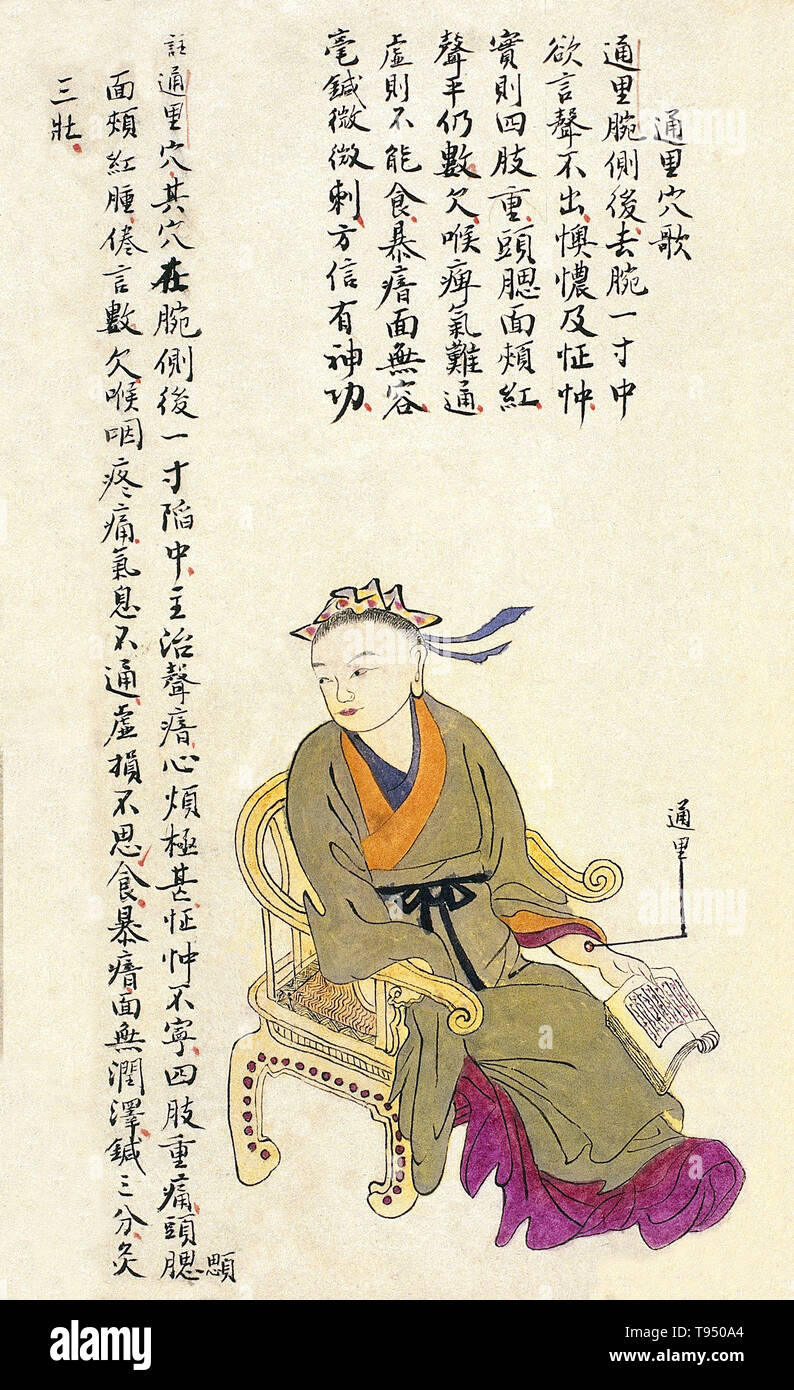 通里穴歌
通里腕側後去腕一寸中
欲言聲不出懊憹及怔忡
實則四肢重頭腮面頰紅
聲平仍數欠喉痺氣難通
虛則不能食暴瘖面無容
毫鍼微微刺方信有神功
註通里穴其穴在腕側後一寸陷中主治聲瘖心煩極甚怔忡不寧四肢重痛頭腮
顋
面頰紅腫倦言數欠喉咽疼痛氣息不通虛損不思食暴瘖面無潤澤鍼三分灸
三壯
通里
alamy
Image ID: T950A4
www.alamy.com